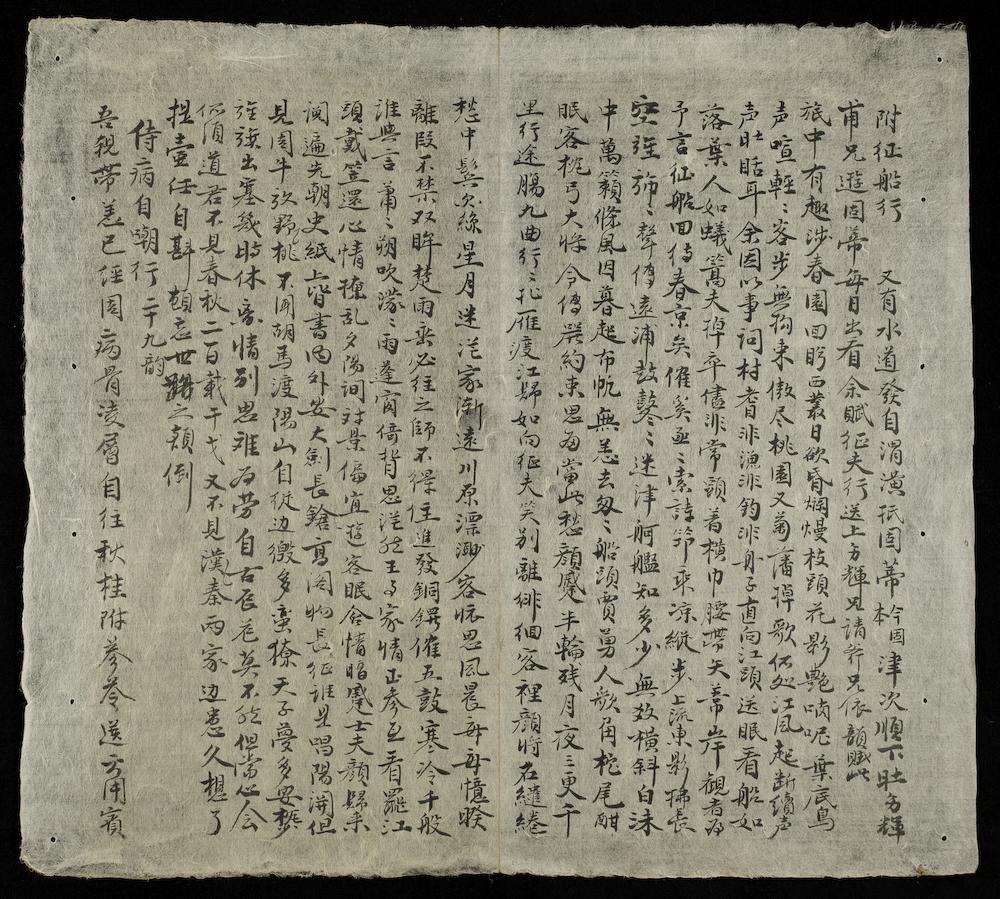 附征船行 又有水道發自渭潢抵固蒂今固本津次順下杜方輝
甫兄遊固蒂每日出看余賦征夫行送上方輝兄請斧兄依韻賦此
旅中有趣涉春園回盻西叢日欲昏爛熳枝頭花影艷喃呢葉底鳥
声喧輕々客步無拘束傲尽桃園又菊潘棹歌何処江風起断續声
声肚聒耳余因以事詞村耆非漁非釣非舟子直向江頭送眠看船如
落葉人如蟻篙夫掉卒儘非常頭着横巾腰帶矢蒂岸觀者為
予言征船回待春京矣催奚亟々索詩節乘凉縱步上流東影拂長
空旌旆々聲傳遠浦鼓鼕々迷津舸艦知多少無数横斜白沫
中萬籟倏風因暮起布帆無恙去匆々船頭賈勇人歌角柁尾酣
眠客桃弓大將令傳器約束思為當此愁顏蹙半輪残月夜三更千
里行途腸九曲行々孤雁渡江歸如向征夫笑别離徘徊客裡顏將名繾綣
愁中鬂欠絲星月迷茫家漸遠川原漂渺客懷思風晨每每憶暌
離叚不禁双眸楚雨垂必往之師不得住進發銅鑼催五鼓寒冷千般
誰與言蕭々朔吹濛々雨蓬窗倚背思茫然王事家情正參亙看罷江
頭戴笠還心情撩乱夕陽詞対景偏宜遊客眠含情暗蹙士夫顏歸来
閲遍先朝史紙上皆書内外安大劍長鎗高閣物長征誰果唱陽開但
見周牛放野桃不聞胡馬渡陽山自從边徼多蛮獠天子蔓多安槩
旌旗出塞幾時休家情别思难為勞自古辰花莫不然但常心会
何須道君不見春秋二百載干戈又不見漢秦两家边患久想了
提壺任自斟頓忘世路之顛倒
侍病自嘲行二十九韵
吾親帶恙已經周病骨淩層自往秋桂附參苓送云用賓